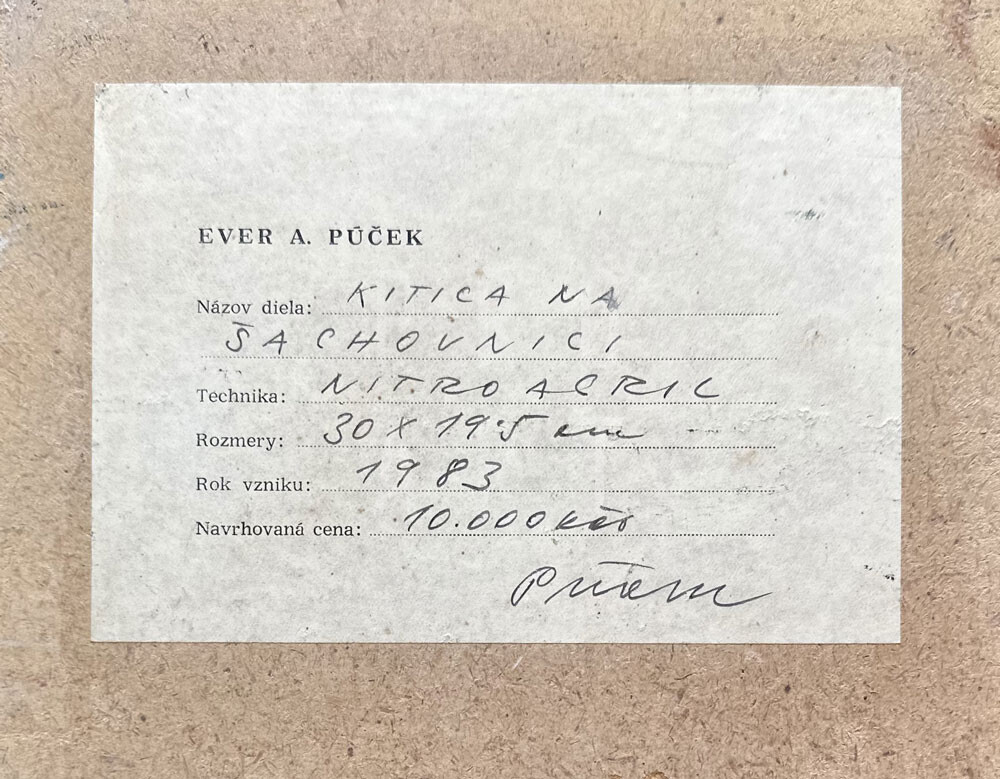 EVER A. PÚČEK
Názov diela: KITICA NA
ŠACHOVNICI
Technika: NITRO ACRIL
Rozmery: 30 X 19.5 cm
Rok vzniku: 1983
Navrhovaná cena: 10.000 Kčs
Púček